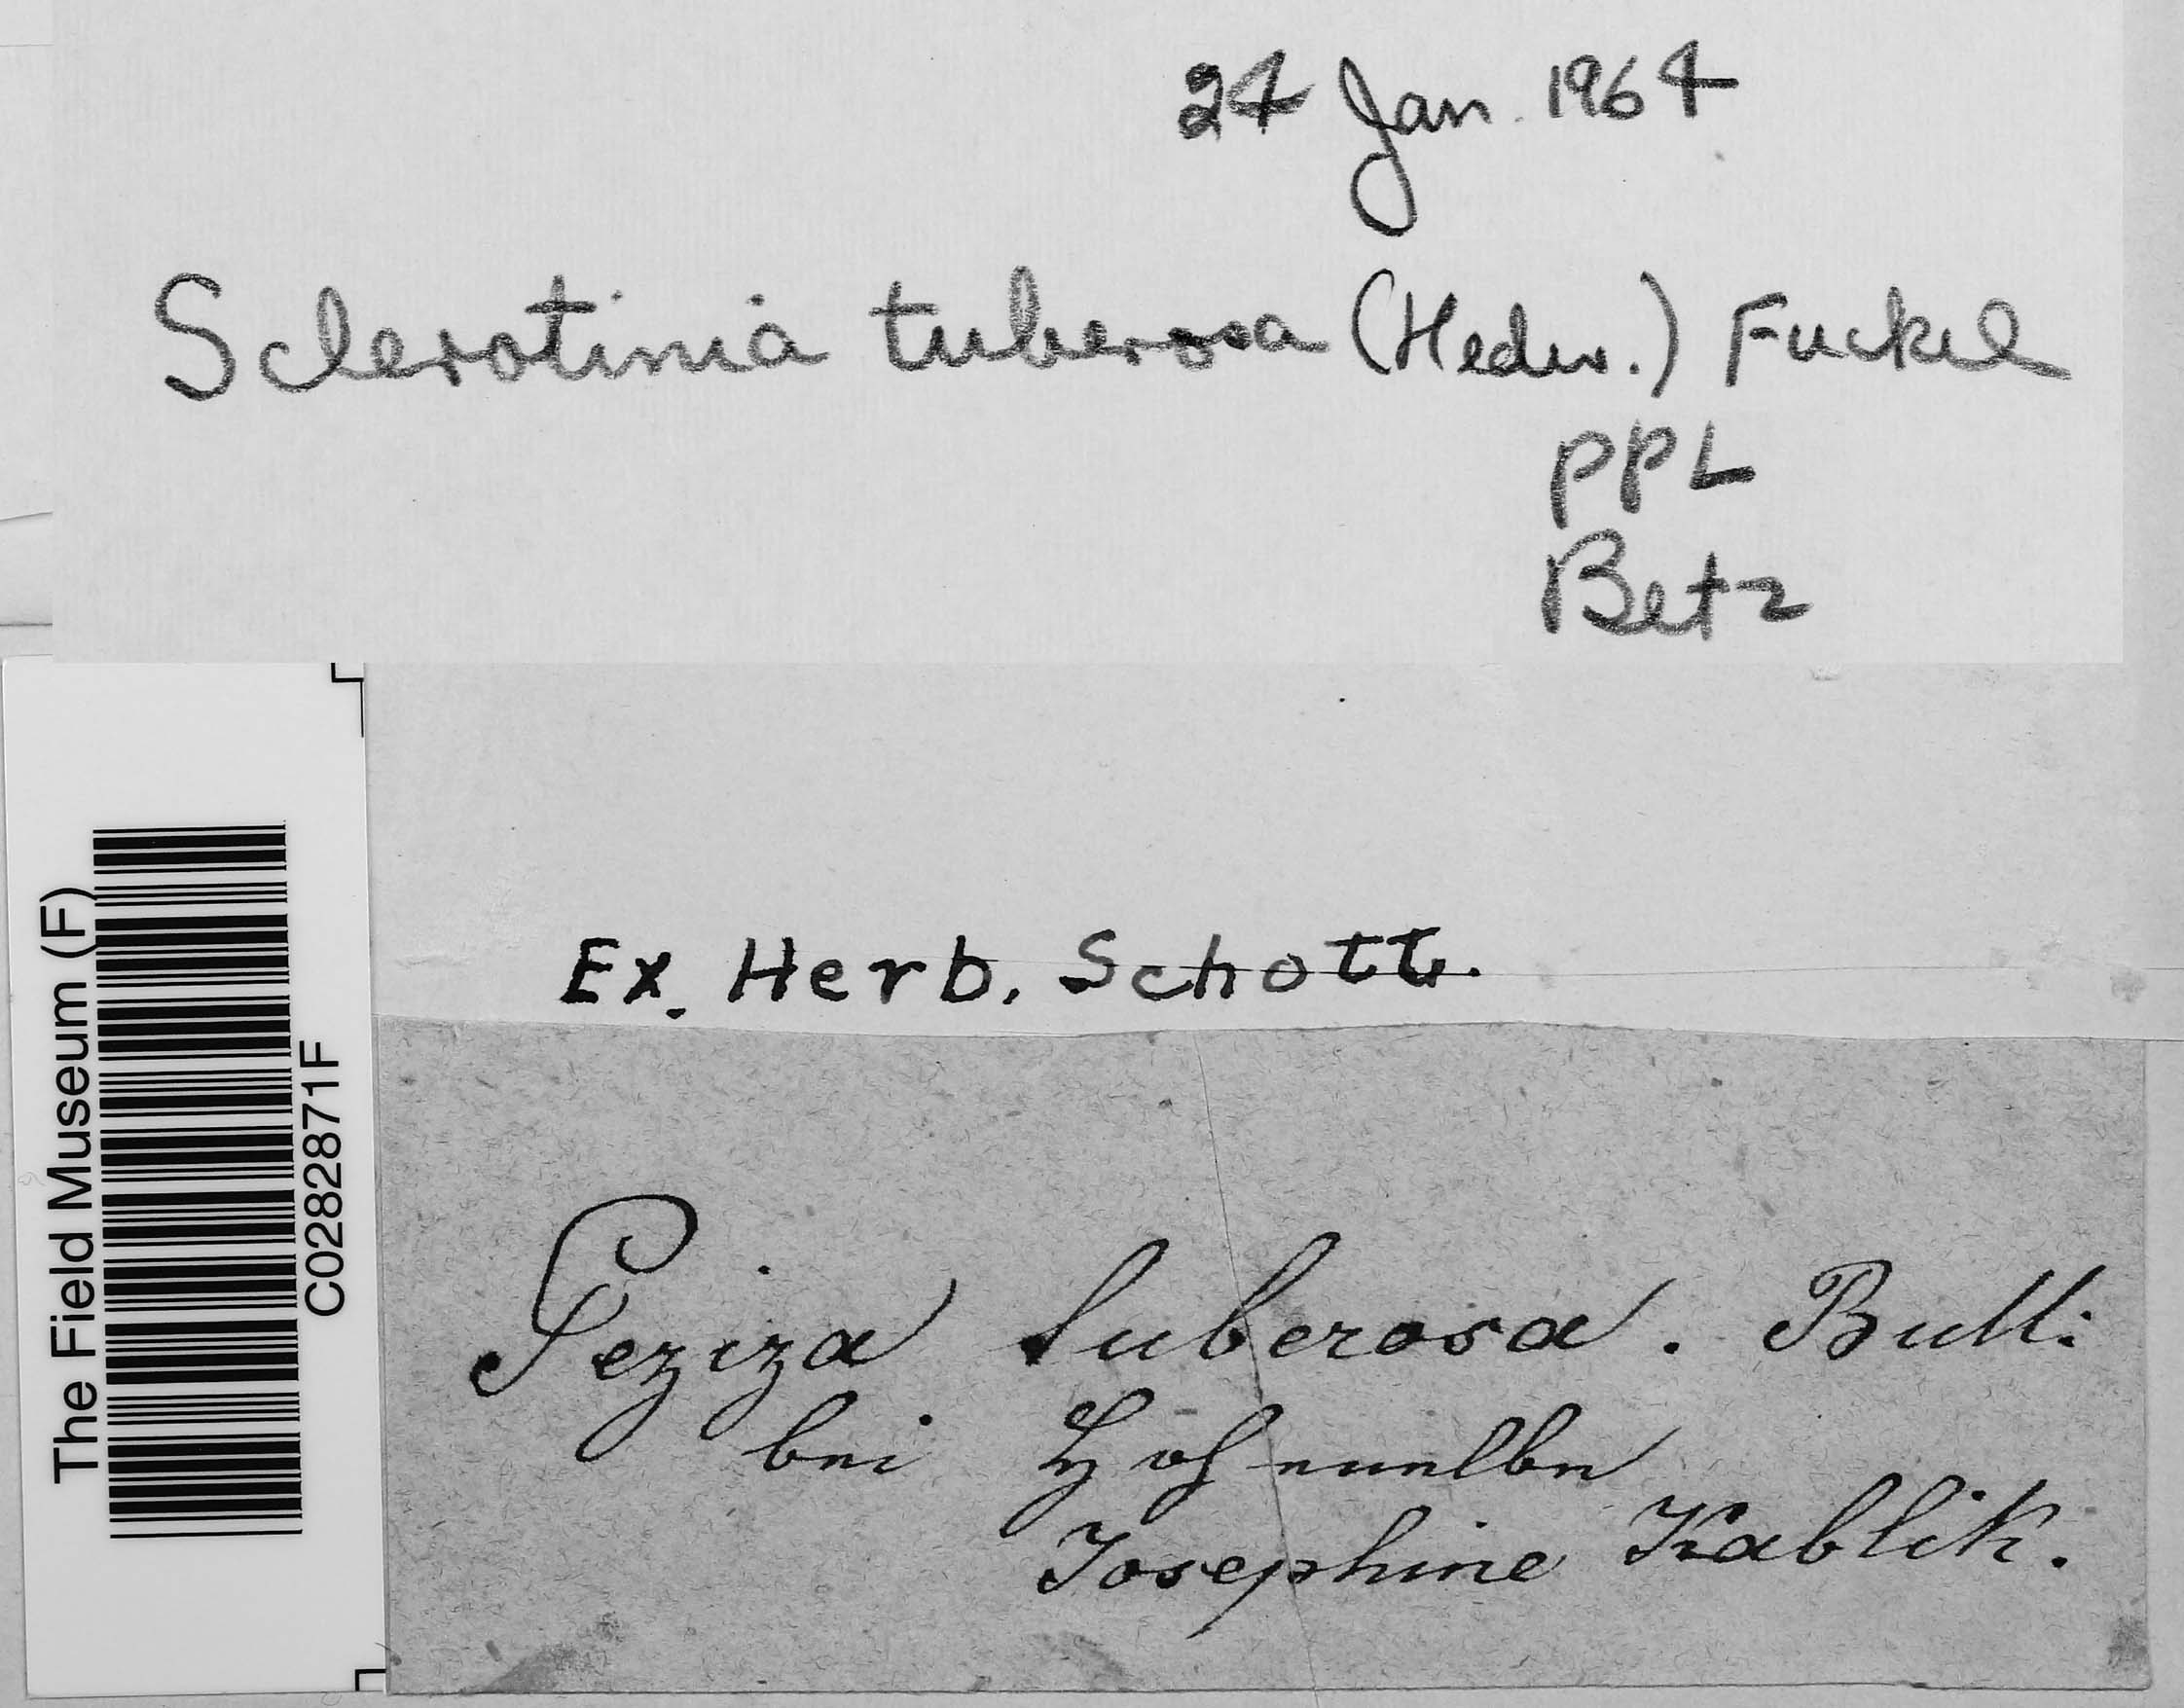 24 Jan. 1964
Sclerotinia tuberosa (Hedw.) Fuckel
PPL
Betz
The Field Museum (F)
C0282871F
Ex. Herb. Schott.
Peziza tuberosa. Bull:
bei Hohenelbe
Josephine Kablik.